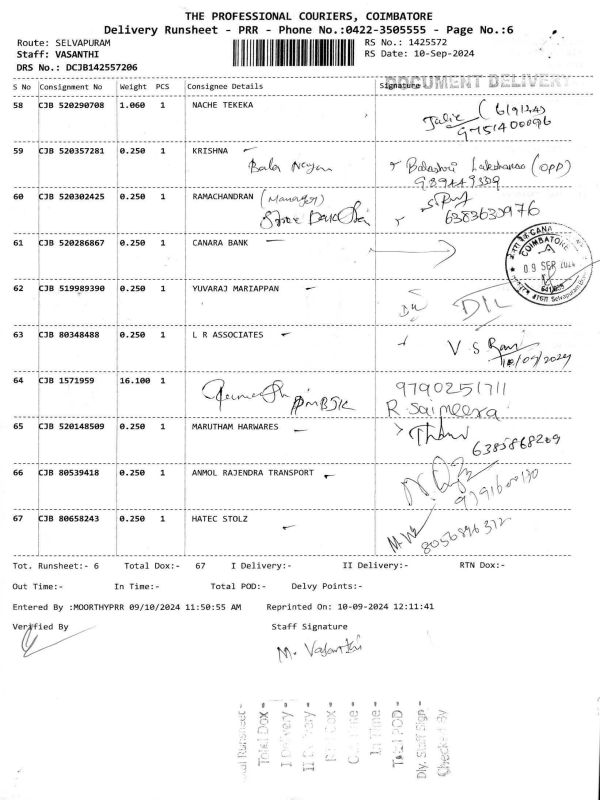 THE PROFESSIONAL COURIERS, COIMBATORE
Delivery Runsheet - PRR - Phone No.:0422-3505555 - Page No.:6
Route: SELVAPURAM RS No.: 1425572
Staff: VASANTHI RS Date: 10-Sep-2024
DRS No.: DCJB142557206
DOCUMENT DELIVERY
S No Consignment No Weight PCS Consignee Details Signature
58 CJB 520290708 1.060 1 NACHE TEKEKA
9751400096
59 CJB 520357281 0.250 1 KRISHNA
60 CJB 520302425 0.250 1 RAMACHANDRAN (Manager)
6383630976
61 CJB 520286867 0.250 1 CANARA BANK
CANA
COIMBATORE
09 SEP 2024
Selvapuram
62 CJB 519989390 0.250 1 YUVARAJ MARIAPPAN
63 CJB 80348488 0.250 1 L R ASSOCIATES
V S Ravi
10/09/2024
64 CJB 1571959 16.100 1
9790251711
65 CJB 520148509 0.250 1 MARUTHAM HARWARES
6385868209
66 CJB 80539418 0.250 1 ANMOL RAJENDRA TRANSPORT
9791600130
67 CJB 80658243 0.250 1 HATEC STOLZ
8056896312
Tot. Runsheet:- 6 Total Dox:- 67 I Delivery:- II Delivery:- RTN Dox:-
Out Time:- In Time:- Total POD:- Delvy Points:-
Entered By :MOORTHYPRR 09/10/2024 11:50:55 AM Reprinted On: 10-09-2024 12:11:41
Verified By Staff Signature
M. Vasanthi
Total Dox -
I Delivery -
II Delivery -
In Time -
Total POD -
Dly. Staff Sign -
Checked By